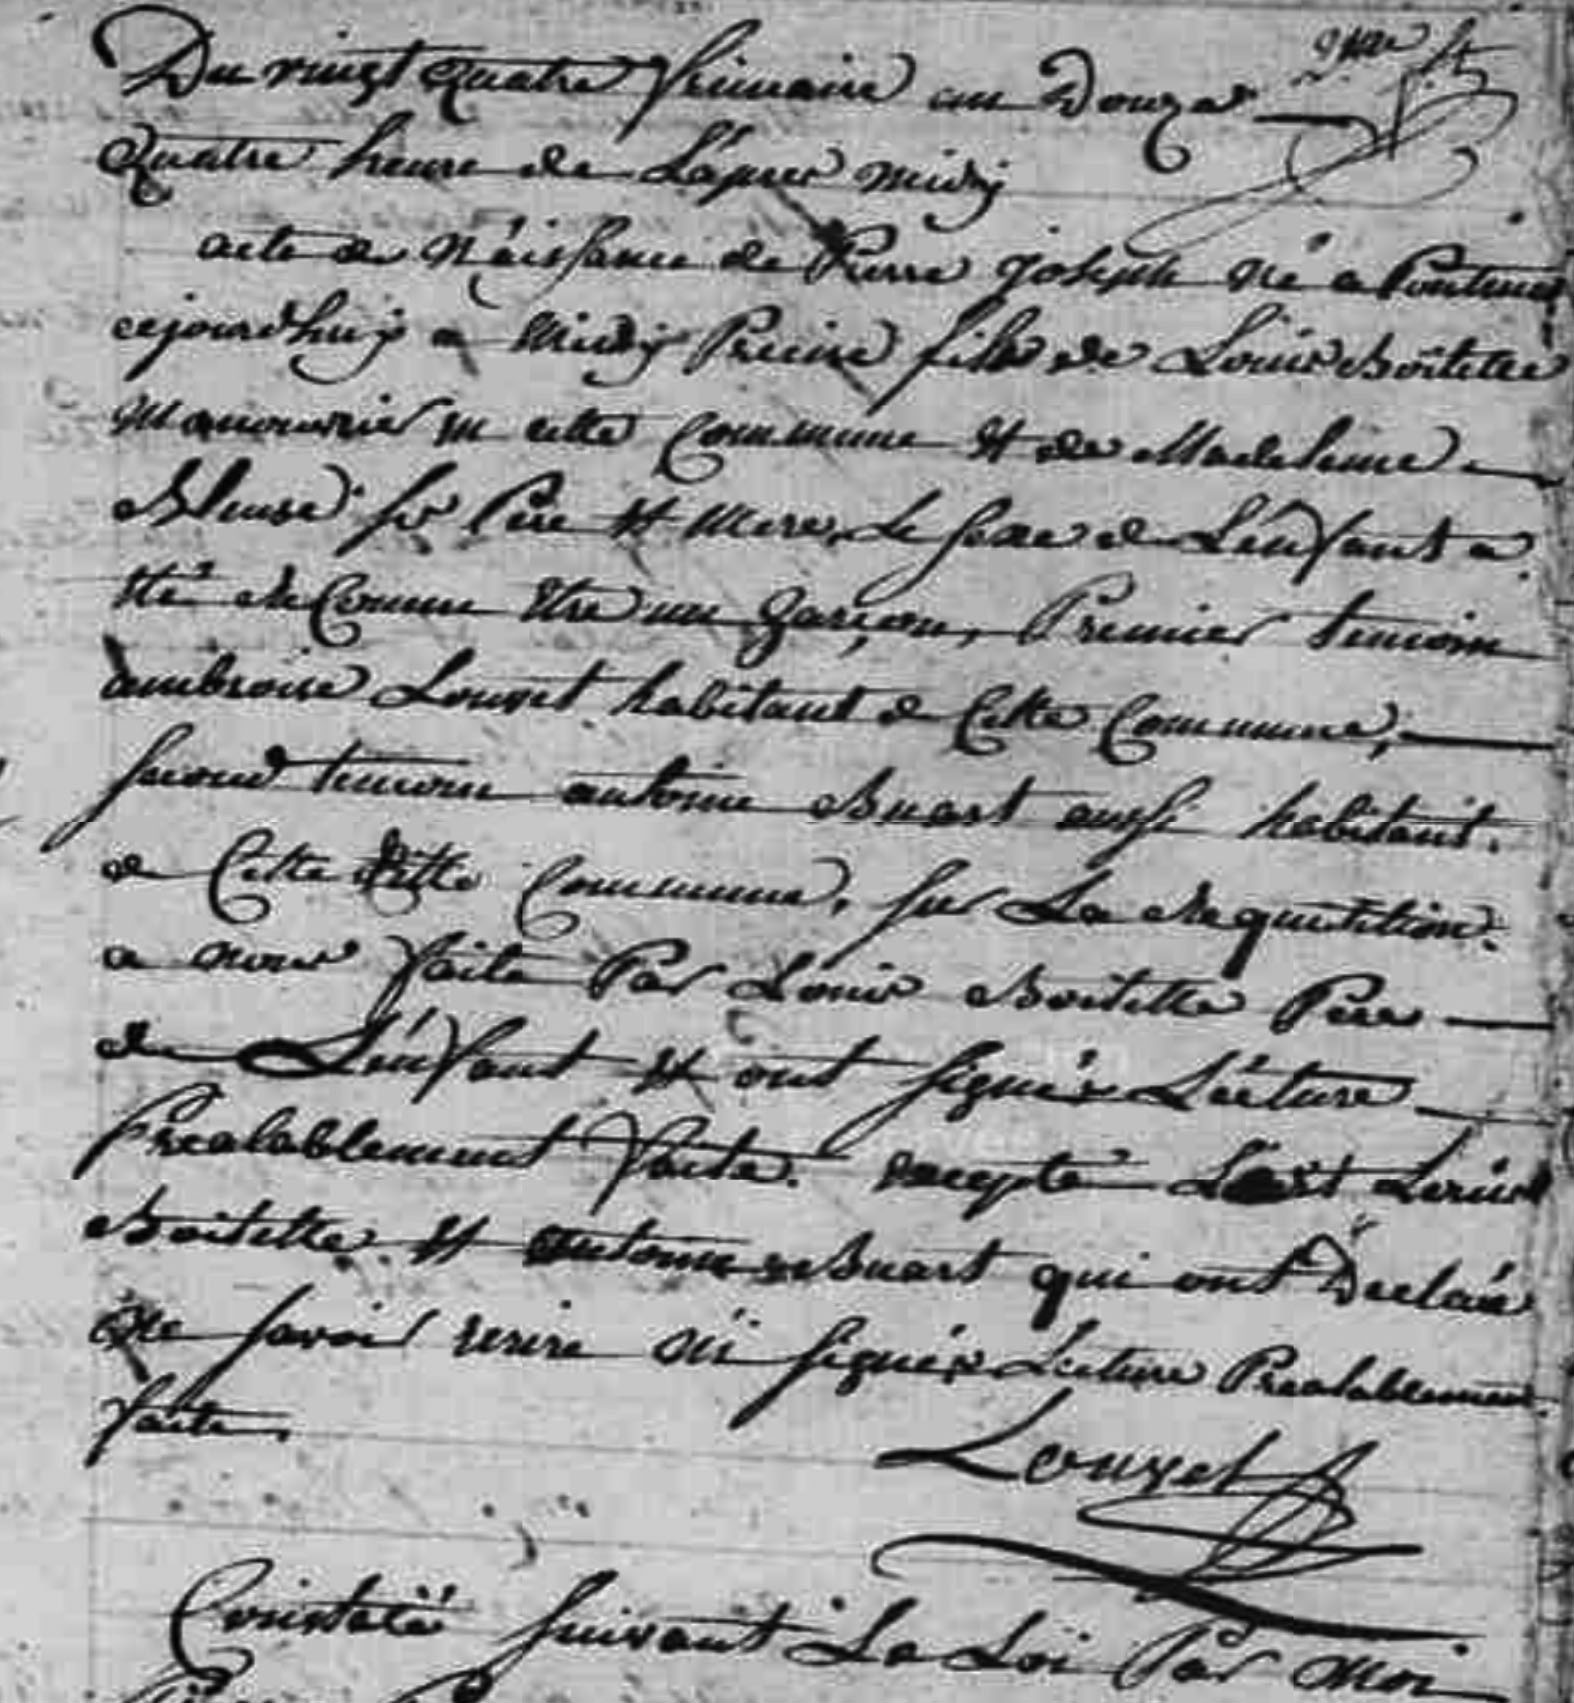 Du vingt quatre frimaire an Douze
quatre heure de L'aprés midÿ
acte de Néissance de Pierre joseph né a
cejourd'huÿ a Midÿ Precise fils de Louis Boitelle
manouvrier en cette Commune et de Madeleine
ses Pere et Mere, Le sexe de L'enfant a
été reConnu être un garçon, Premier temoin
ambroise Louvet habitant de Cette Commune,
second temoin antoine Buart aussi habitant
de Cette ditte Commune, sur La requisition
a nous faite Par Louis Boitelle Pere
de L'énfant et ont signér Lécture
Préalablement faite. excepté Louis
Boitelle et antoine Buart qui ont Déclaré
ne savoir ecrire ni signér Lecture Prealablement
faite,
Louvet
Constaté suivant La Loi Par Moi